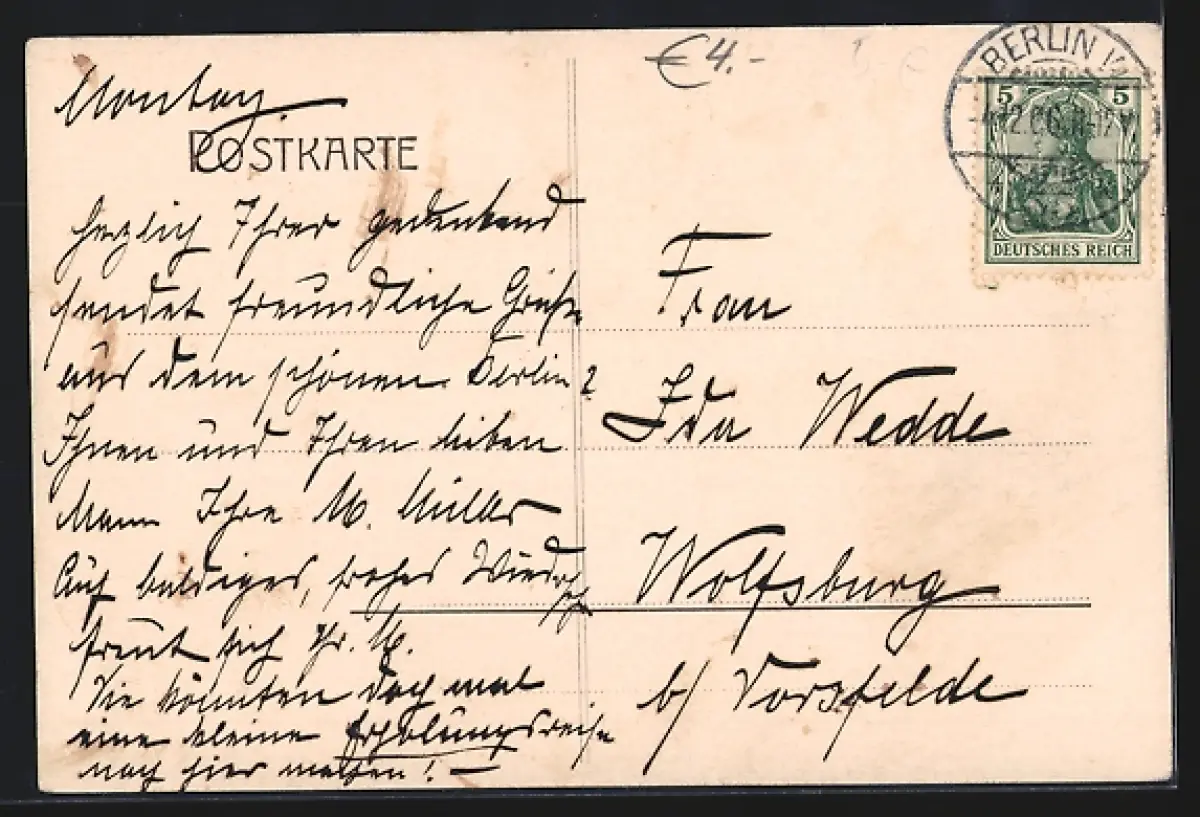 Montag.
POSTKARTE
Herzlich Ihrer gedenkend
sendet freundliche Grüße
aus dem schönen Berlin
Ihnen und Ihren lieben
Mann Ihre M. Müller
Auf baldiges, frohes Wiedersehn
freut sich Ihr. M.
Sie könnten doch mal
eine kleine Erholungsreise
nach hier machen! —
€ 4.-
BERLIN
12.06. 11-12 V
5 5
DEUTSCHES REICH
Frau
Ida Wedde
Wolfsburg
b/ Vorsfelde